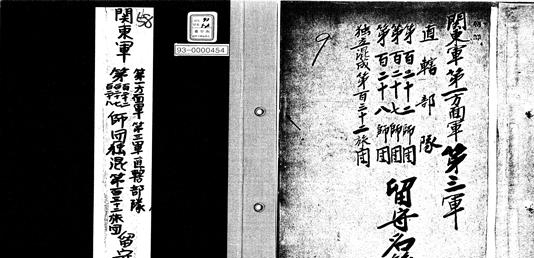 58
関東軍
第一方面軍第三軍直轄部隊
師団独混第百三十二旅団
留守
93-0000454
関東軍第一方面軍第三軍
直轄部隊
第百十二師団
第百二十七師団
第百二十八師団
独立混成第百三十二旅団
留守名
9